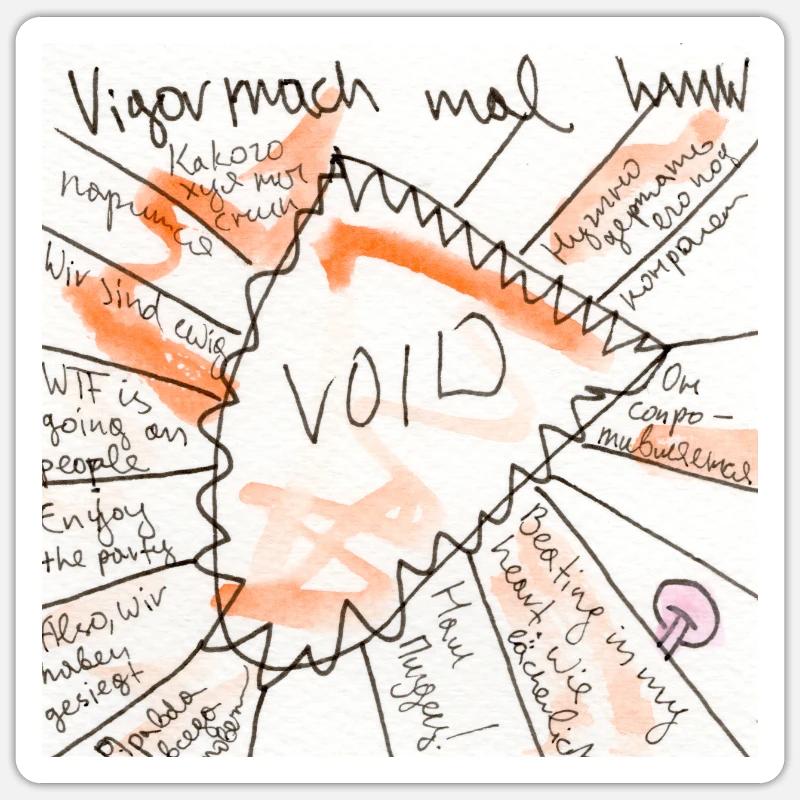 Vigor mach mal
Какого
хуя ты
паришься
Нужно
держать
его под
контролем
Wir sind ewig
VOID
WTF is
going on
people
Enjoy
the party
Он
сопро-
тивляется
Also, wir
haben
gesiegt
Правда
всегда
Нам
пиздец!
Beating in my
heart. Wie
lächerlich